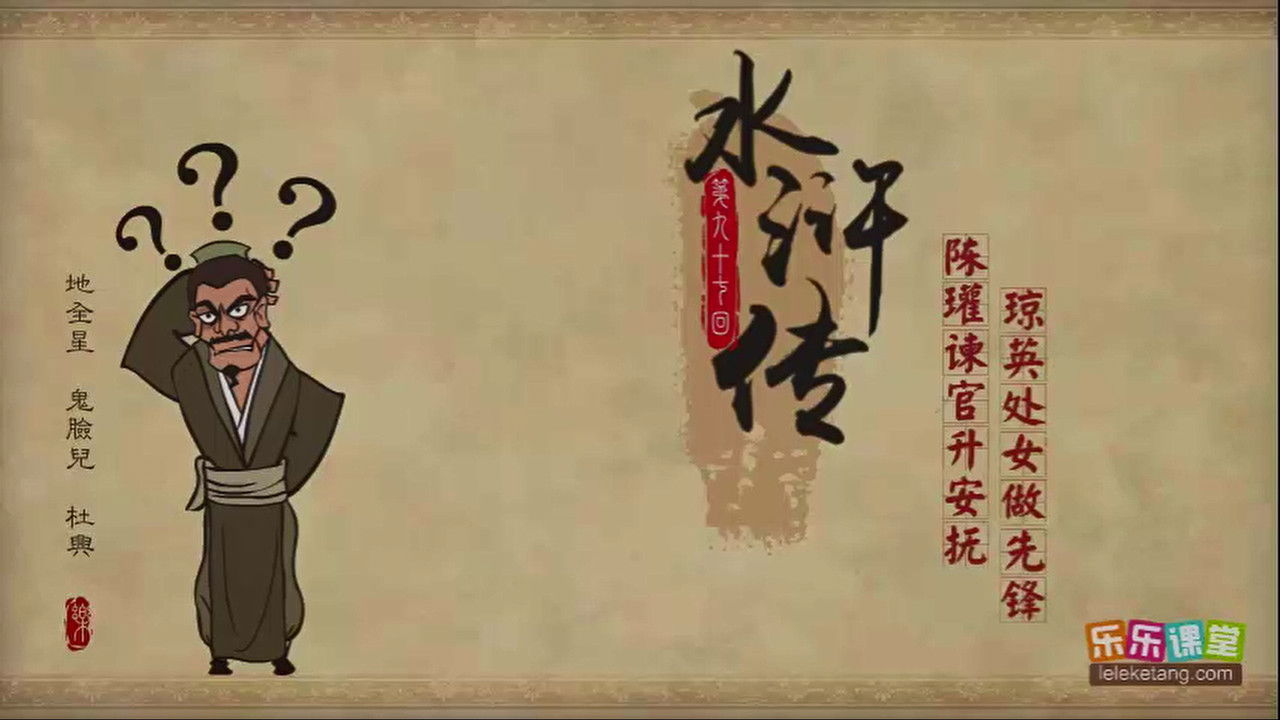 水浒传
第九十七回
陈瓘谏官升安抚
琼英处女做先锋
地全星 鬼臉兒 杜興
樂
乐乐课堂
leleketang.com